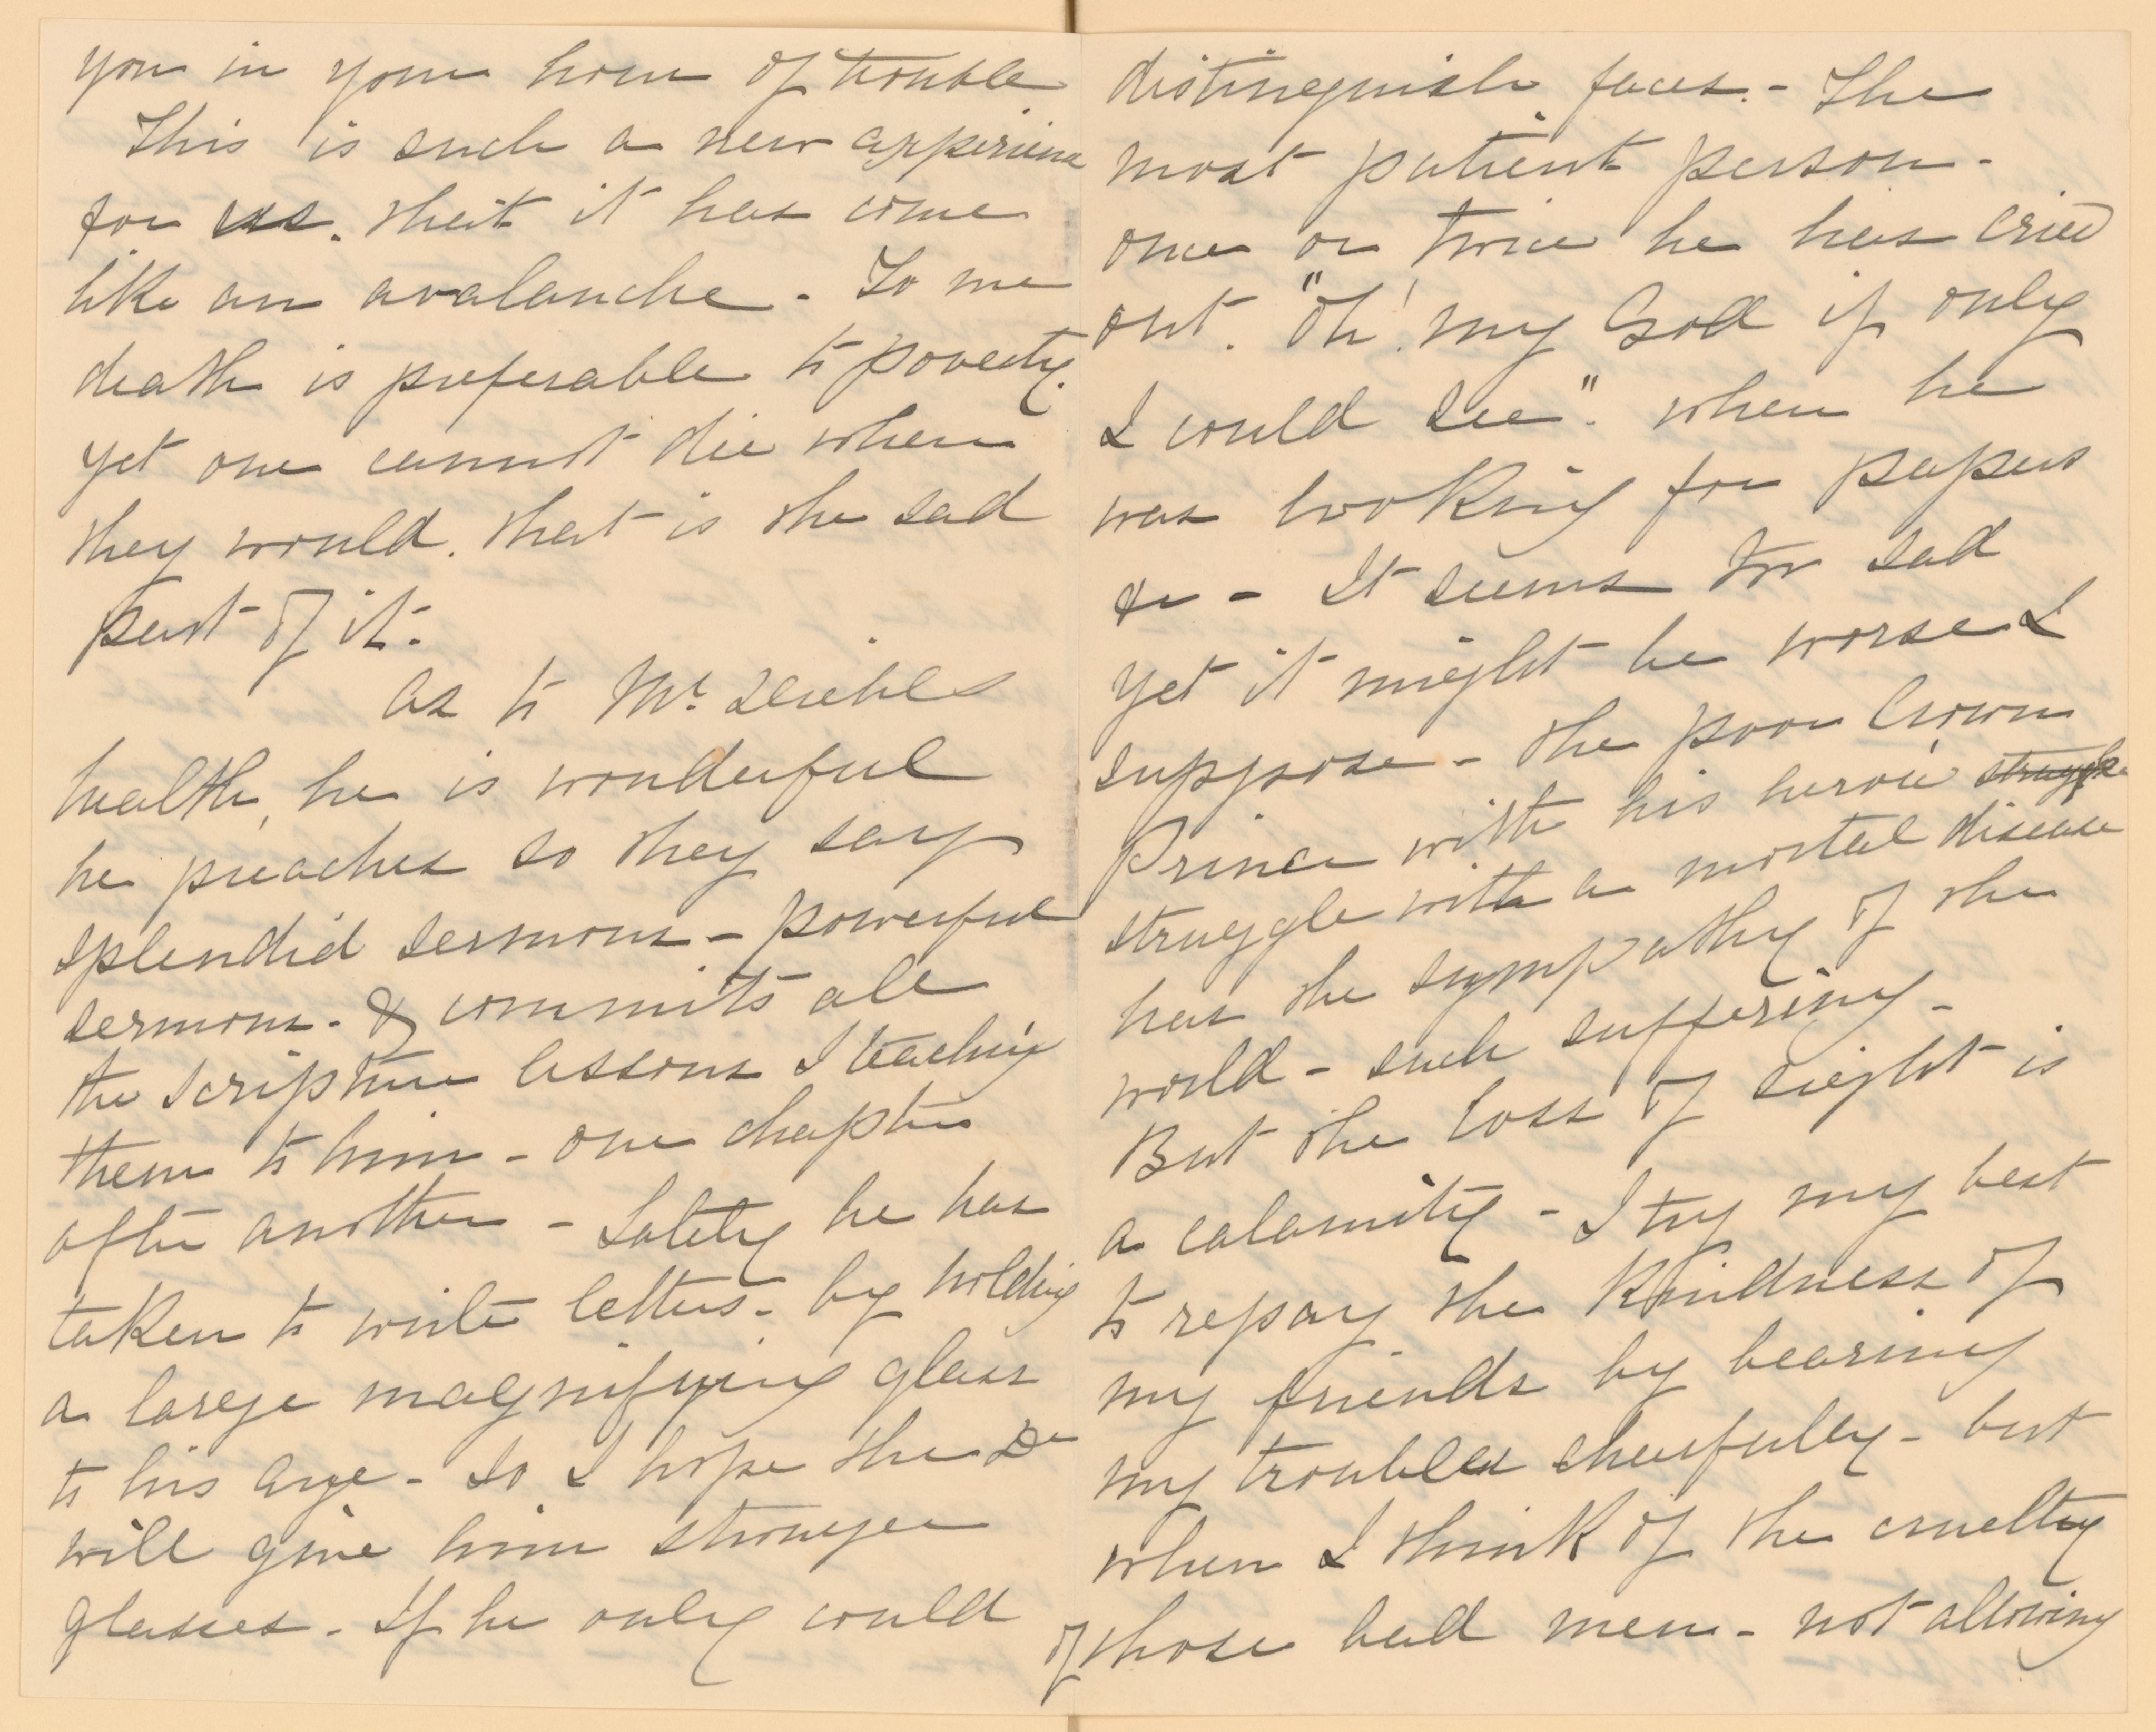 you in your hour of trouble
This is such a new experience
for us. that it has come
like an avalanche - To me
death is preferable to poverty.
yet one cannot die when
they would. that is the sad
part of it.
as to Mr.
health, he is wonderful
he preaches so they say
splendid sermons - powerful
sermons. & commits all
the scripture lessons I teaching
them to him - one chapter
after another - Lately he has
taken to write letters - by holding
a large magnifying glass
to his eye - so I hope the Dr
will give him stronger
glasses - If he only could
distinguish faces. - The
most patient person -
once or twice he has cried
out. "Oh! my God if only
I could see". when he
was looking for papers
&c - It seems too sad
yet it might be worse I
suppose - the poor Crown
Prince with his heroic struggle
struggle with a mortal disease
has the sympathy of the
world - such suffering -
But the loss of sight is
a calamity - I try my best
to repay the kindness of
my friends by bearing
my troubles cheerfully - but
when I think of the cruelty
of those bad men - not allowing